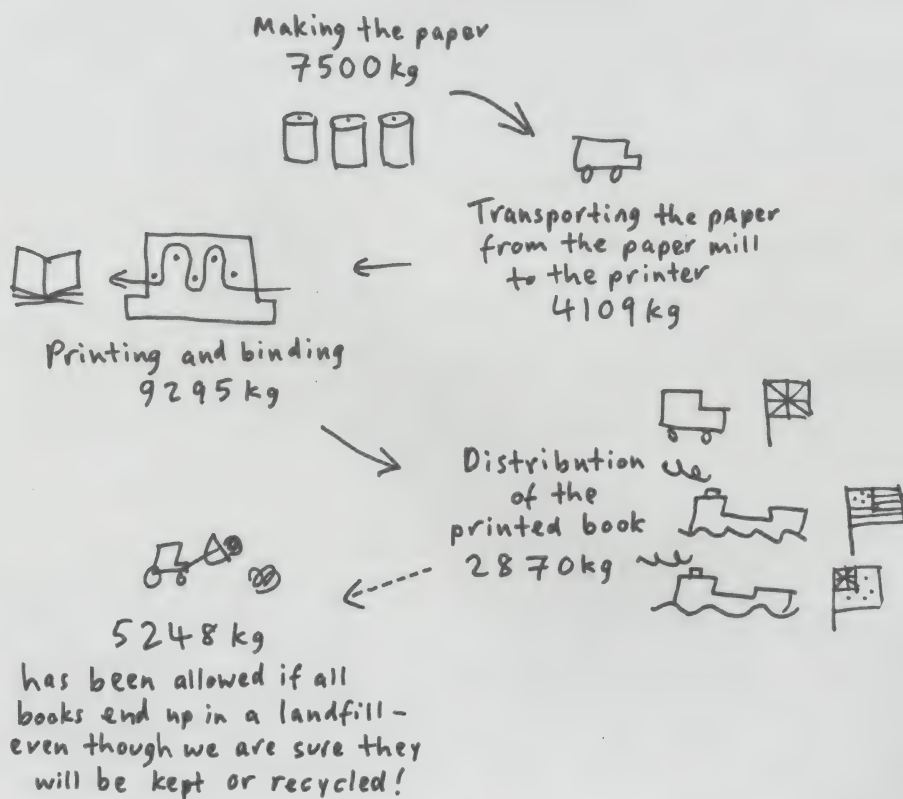 Making the paper
7500kg
Transporting the paper
from the paper mill
to the printer
4109kg
Printing and binding
9295kg
Distribution
of the
printed book
2870kg
5248kg
has been allowed if all
books end up in a landfill-
even though we are sure they
will be kept or recycled!